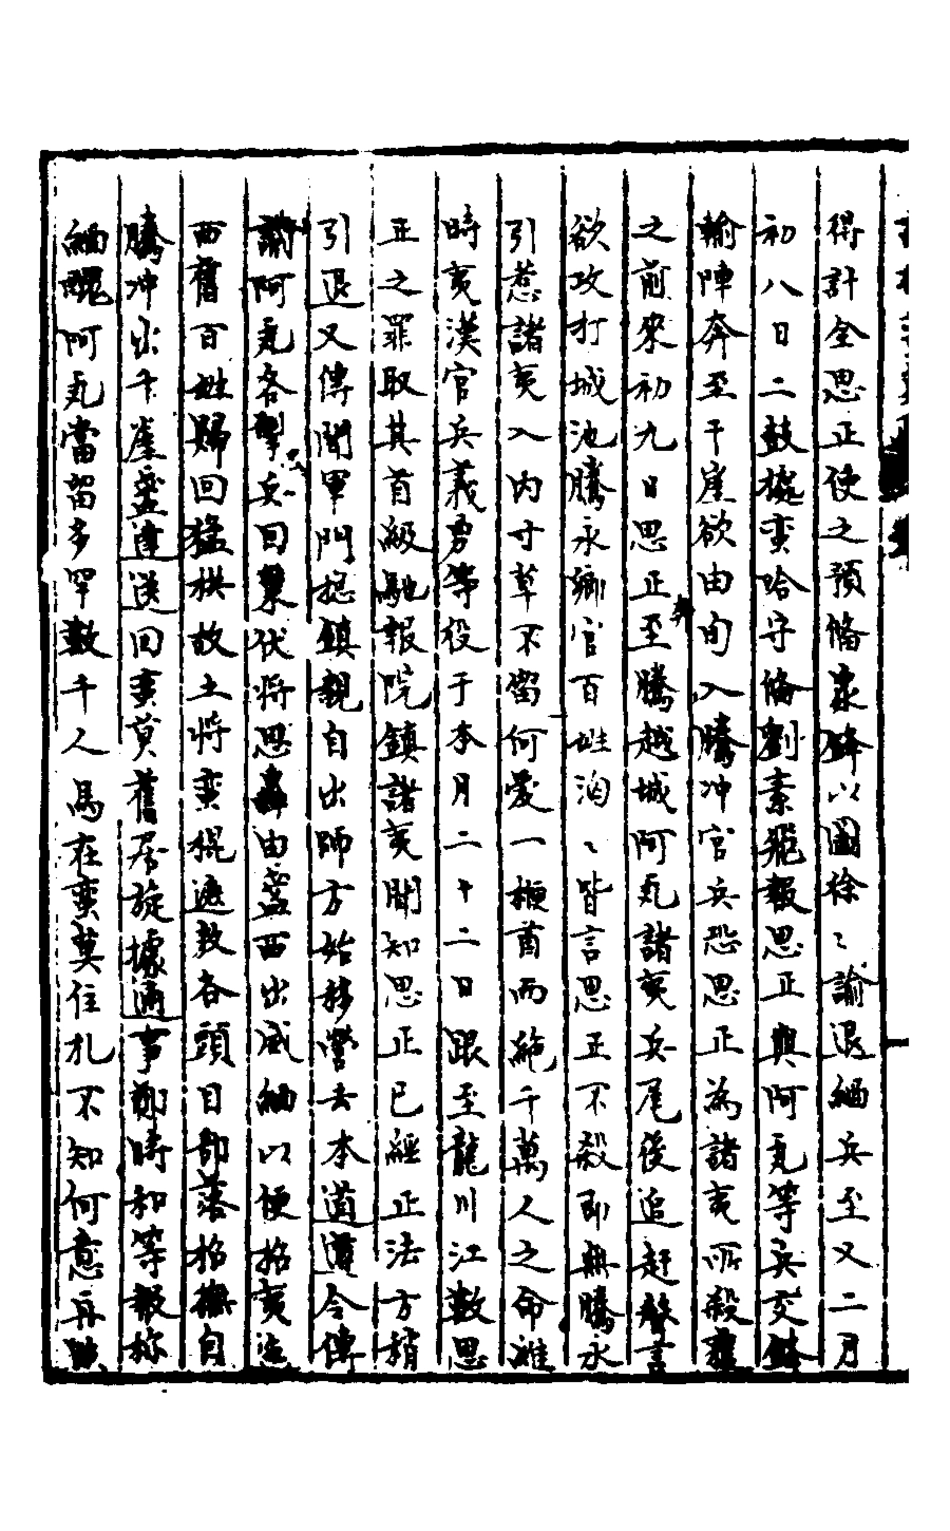 得計全思正使之預備象鋒以圖徐〻諭退緬兵至又二月
初八日二鼓據蛮哈守備劉素飛報思正與阿瓦等兵交鋒
輸陣奔至干崖欲由旬入騰冲官兵恐思正為諸夷所殺
之前來初九日思正至騰越城阿瓦諸夷兵尾後追赶聲言
欲攻打城池騰永鄉官百姓洶〻皆言思正不殺即無騰永
引惹諸夷入內寸草不留何愛一梗酋而絕千萬人之命
時夷漢官兵義勇等役于本月二十二日跟至龍川江數思
正之罪取其首級馳報院鎮諸夷聞知思正已經正法方稍
引退又傳聞軍門摠鎮親自出師方始移營去本道遵令傳
諭阿瓦各掣兵回巢伏將思轟由盞西出威緬以便招夷
西舊百姓歸回猛拱故土將蛮棍遮敖各頭目部落招撫自
騰冲出干崖盞達送回蛮莫舊居旋據通事鄭時和等報称
緬酋阿瓦當留多罕數千人馬在蛮莫住札不知何意再